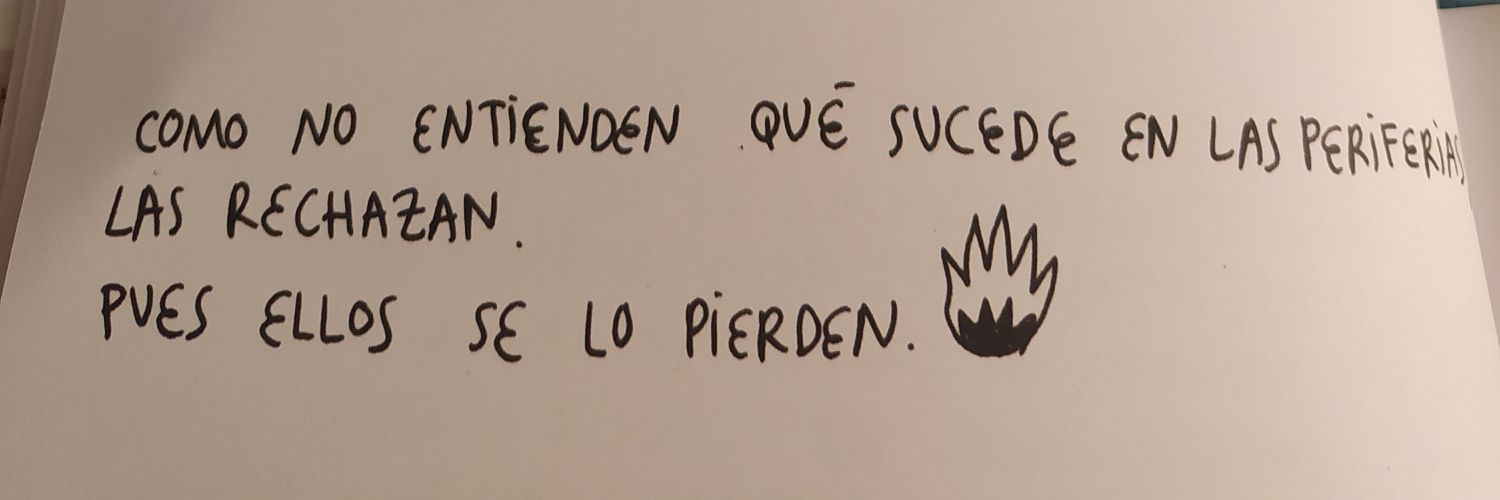 COMO NO ENTIENDEN QUÉ SUCEDE EN LAS PERIFERIAS
LAS RECHAZAN.
PUES ELLOS SE LO PIERDEN.